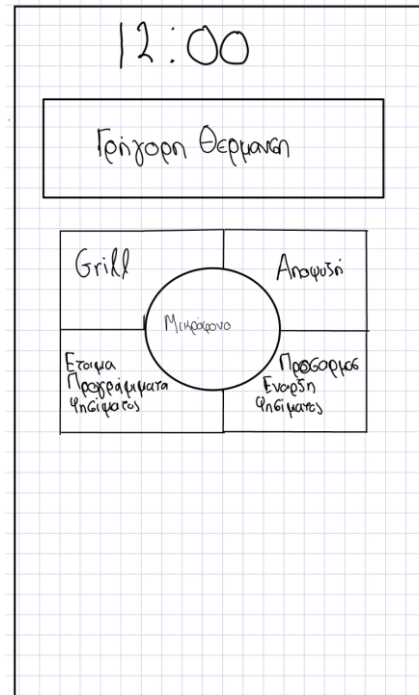 12:00
Γρήγορη Θέρμανση
Grill
Αποψυξή
Μικρόφωνο
Ετοιμα
Προγράμματα
Ψησίματος
Εναρξη
Ψησίματος